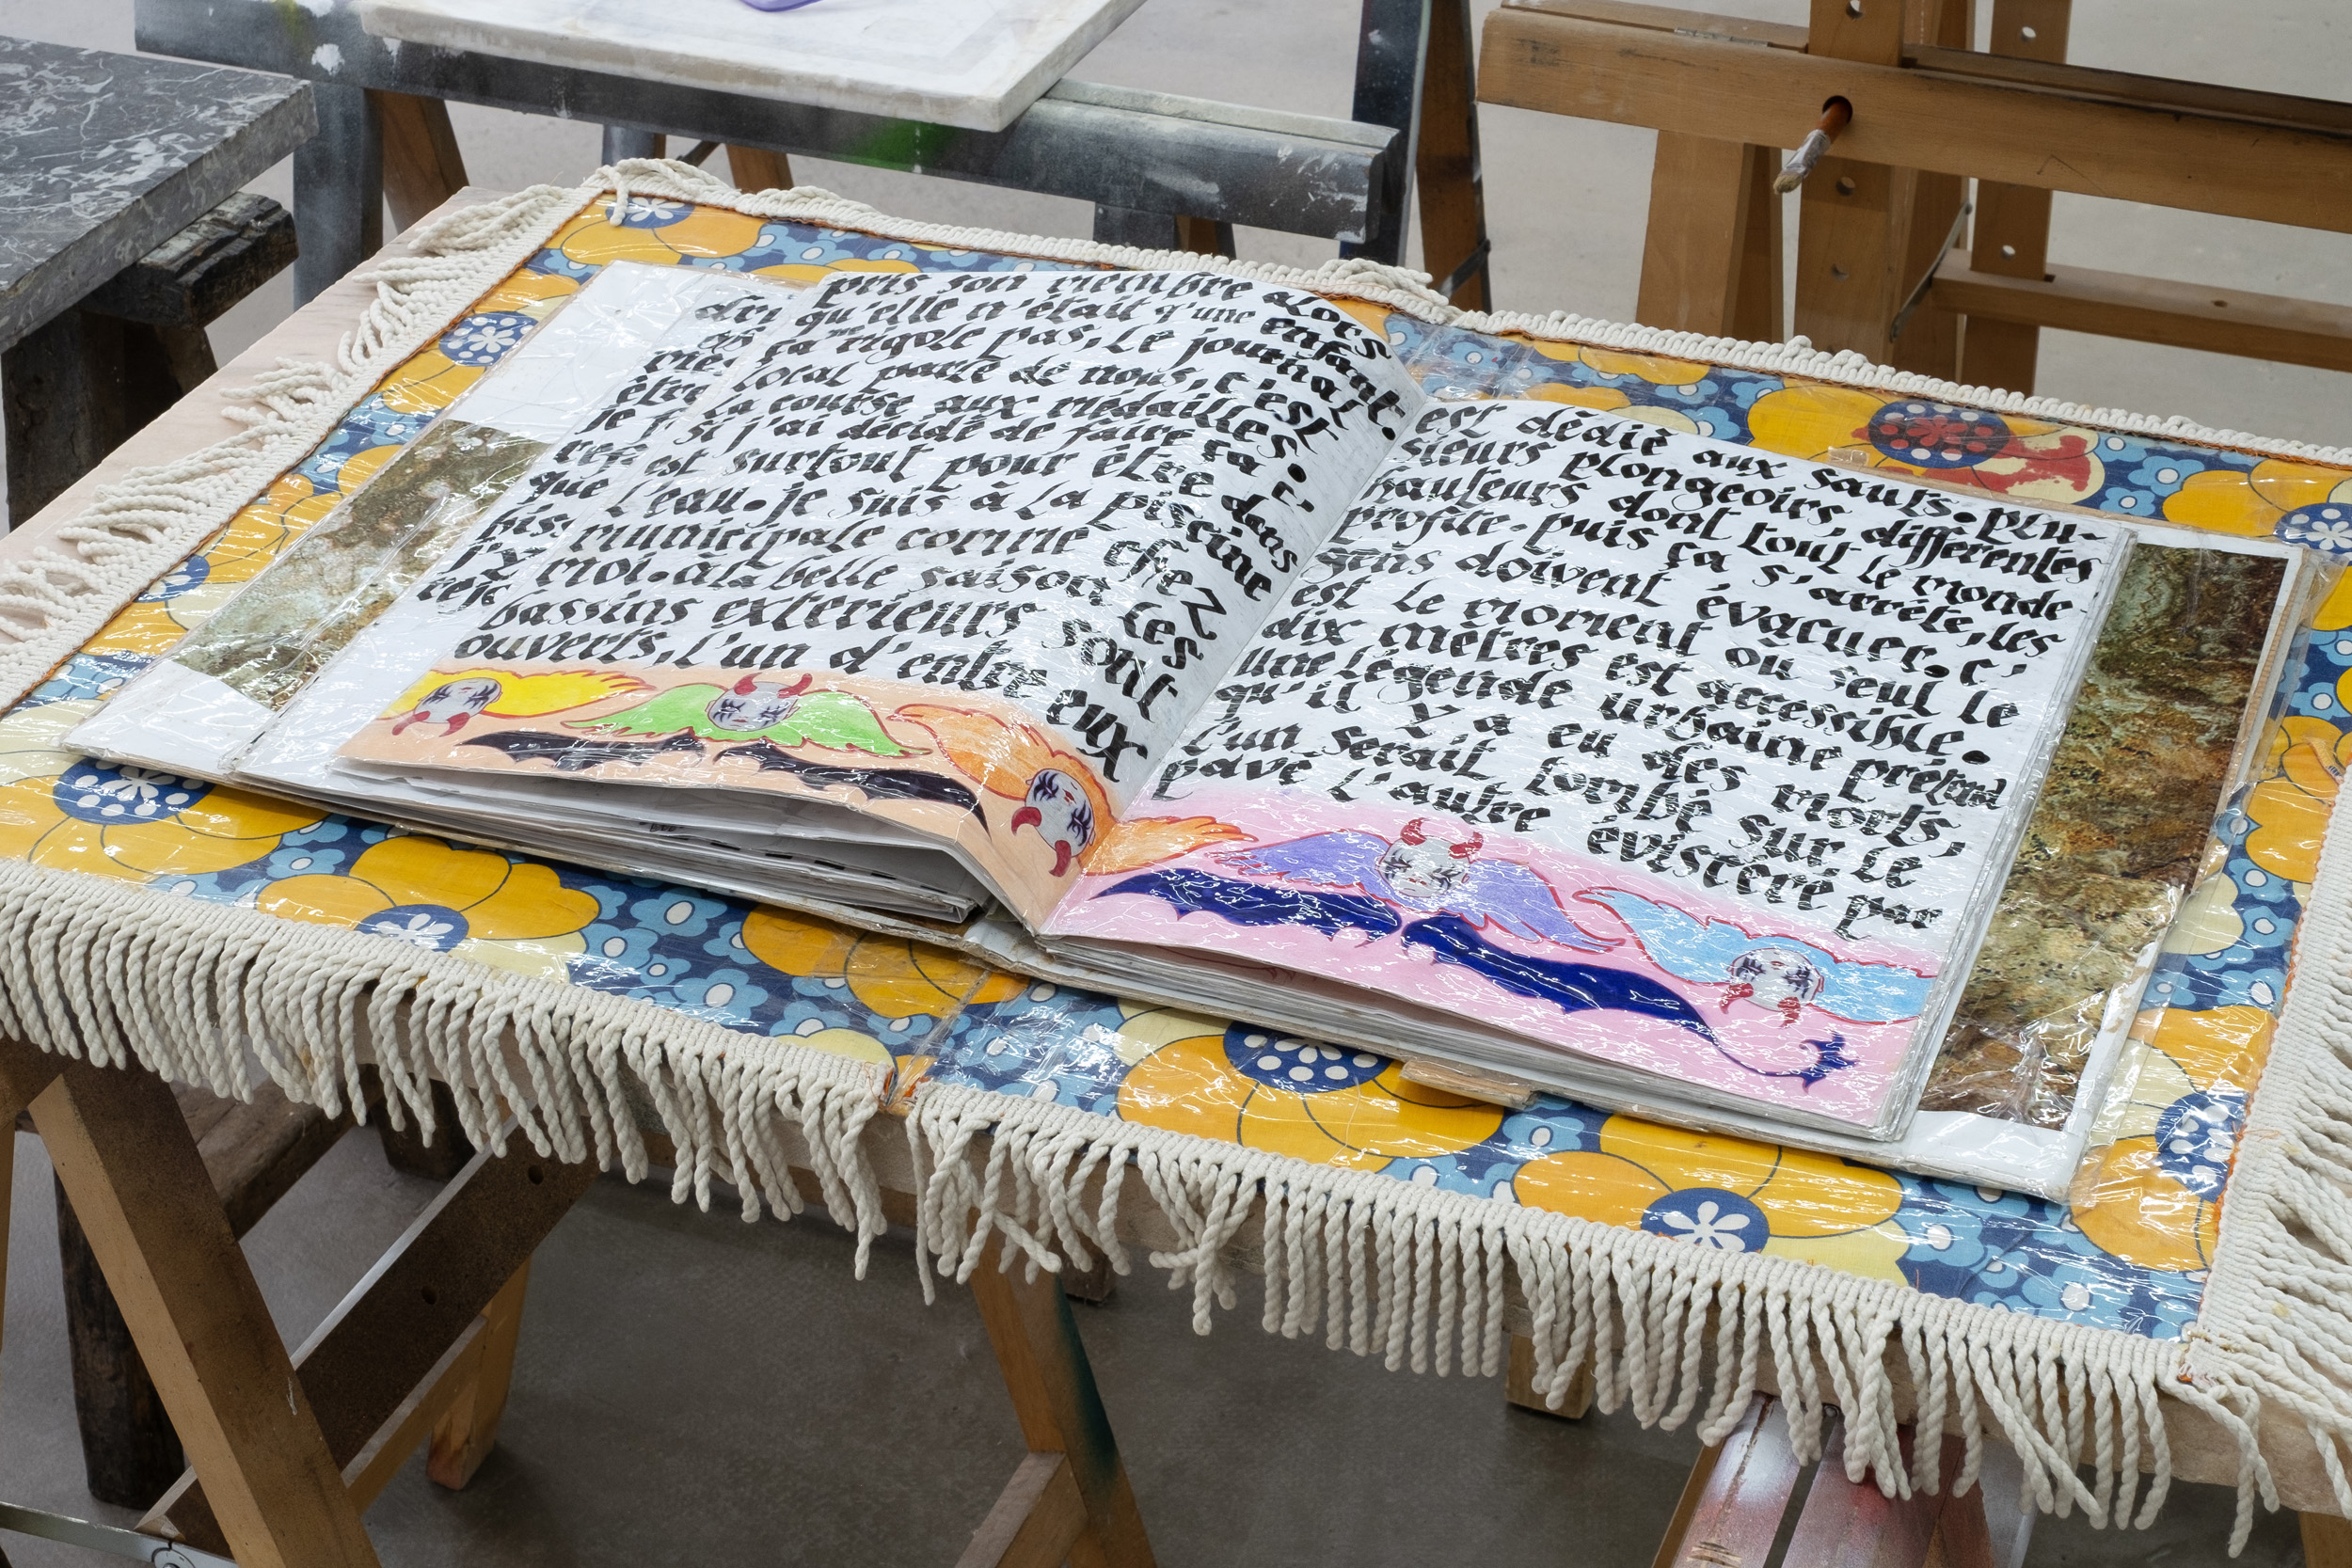 dri
être
je
que
j'y
pris son membre alors
qu'elle n'était qu'une enfant.
ça rigole pas, le journal
local parle de nous, c'est
la course aux médailles.
si j'ai décidé de faire ça c'
est surtout pour être dans
l'eau. je suis à la piscine
municipale comme chez
moi. à la belle saison les
bassins extérieurs sont
ouverts, l'un d'entre eux
est dédié aux sauts. plu-
sieurs plongeoirs, différentes
hauteurs dont tout le monde
profite. puis ça s'arrête, les
gens doivent évacuer. c'
est le moment où seul le
dix mètres est accessible.
une légende urbaine prétend
qu'il y a eu des morts,
l'un serait tombé sur le
pavé l'autre éviscéré par